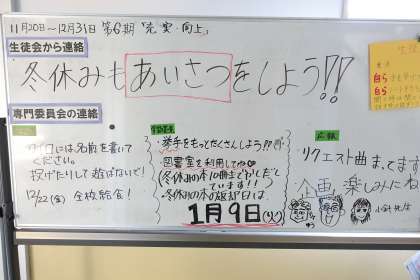 11月20日～12月31日 第6期「充実・向上」
生徒会から連絡
冬休みもあいさつをしよう!!
専門委員会の連絡
には名前を書いて
ください。
投げたりして遊ばないで!
12/22(金) 全校給食!
・挙手をもっとたくさんしよう!!
・図書室を利用してね♡
(冬休みの本10冊まで
ています!!
・冬休みの本の返却日は
1月9日(火)
広報
リクエスト曲まってます
企画楽しみにね